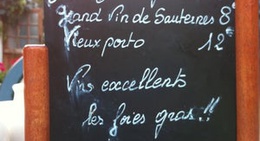 Grand Vin de Sauternes 8€
Vieux porto 12€
Vins excellents
les foies gras !!